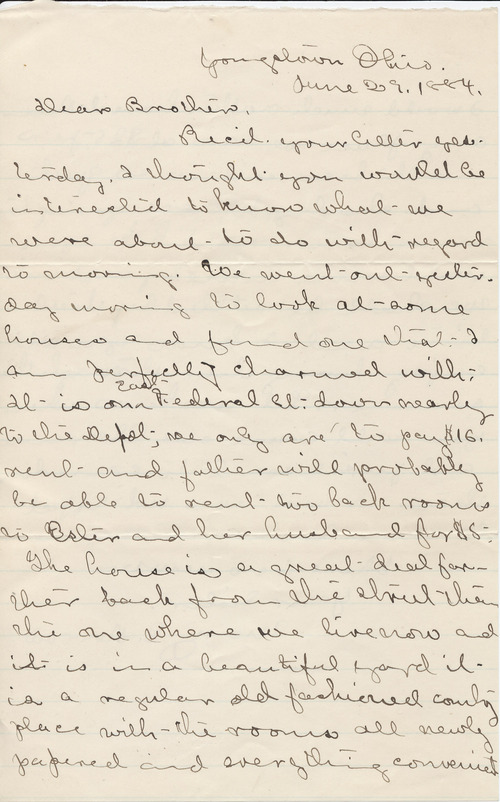 Youngstown Ohio.
June 29. 1884.
Dear Brother.
Recd. your letter yes-
terday. I thought you would be
interested to know what we
were about to do with regard
to moving. We went out yester-
day morning to look at some
houses and find one that I
am perfectly charmed with;
It is on East Federal St. down nearly
to the Depot; we only are to pay $16.
rent and father will probably
be able to rent two back rooms
to Ester and her husband for $5.
The house is a great deal far-
ther back from the street then
the one where we live now ad
it is in a beautiful yard it
is a regular old fashioned county
place with the rooms all newly
papered and everything convenient